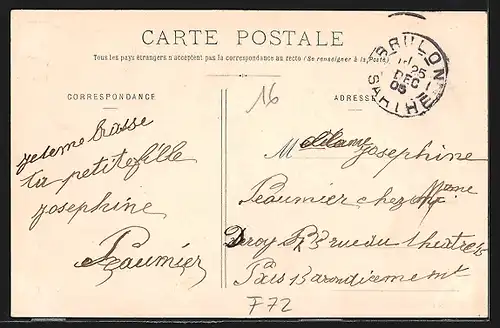 CARTE POSTALE
Tous les pays étrangers n'acceptent pas la correspondance au recto (Se renseigner à la Poste)
BRULON
25
DEC
05
SARTHE
CORRESPONDANCE
ADRESSE
16
je teme brasse
ta petite fille
josephine
Peaumier
M josephine
Peaumier chez Mme
Deroy 83 rue du theatre
Paris 15 arondisement
F72